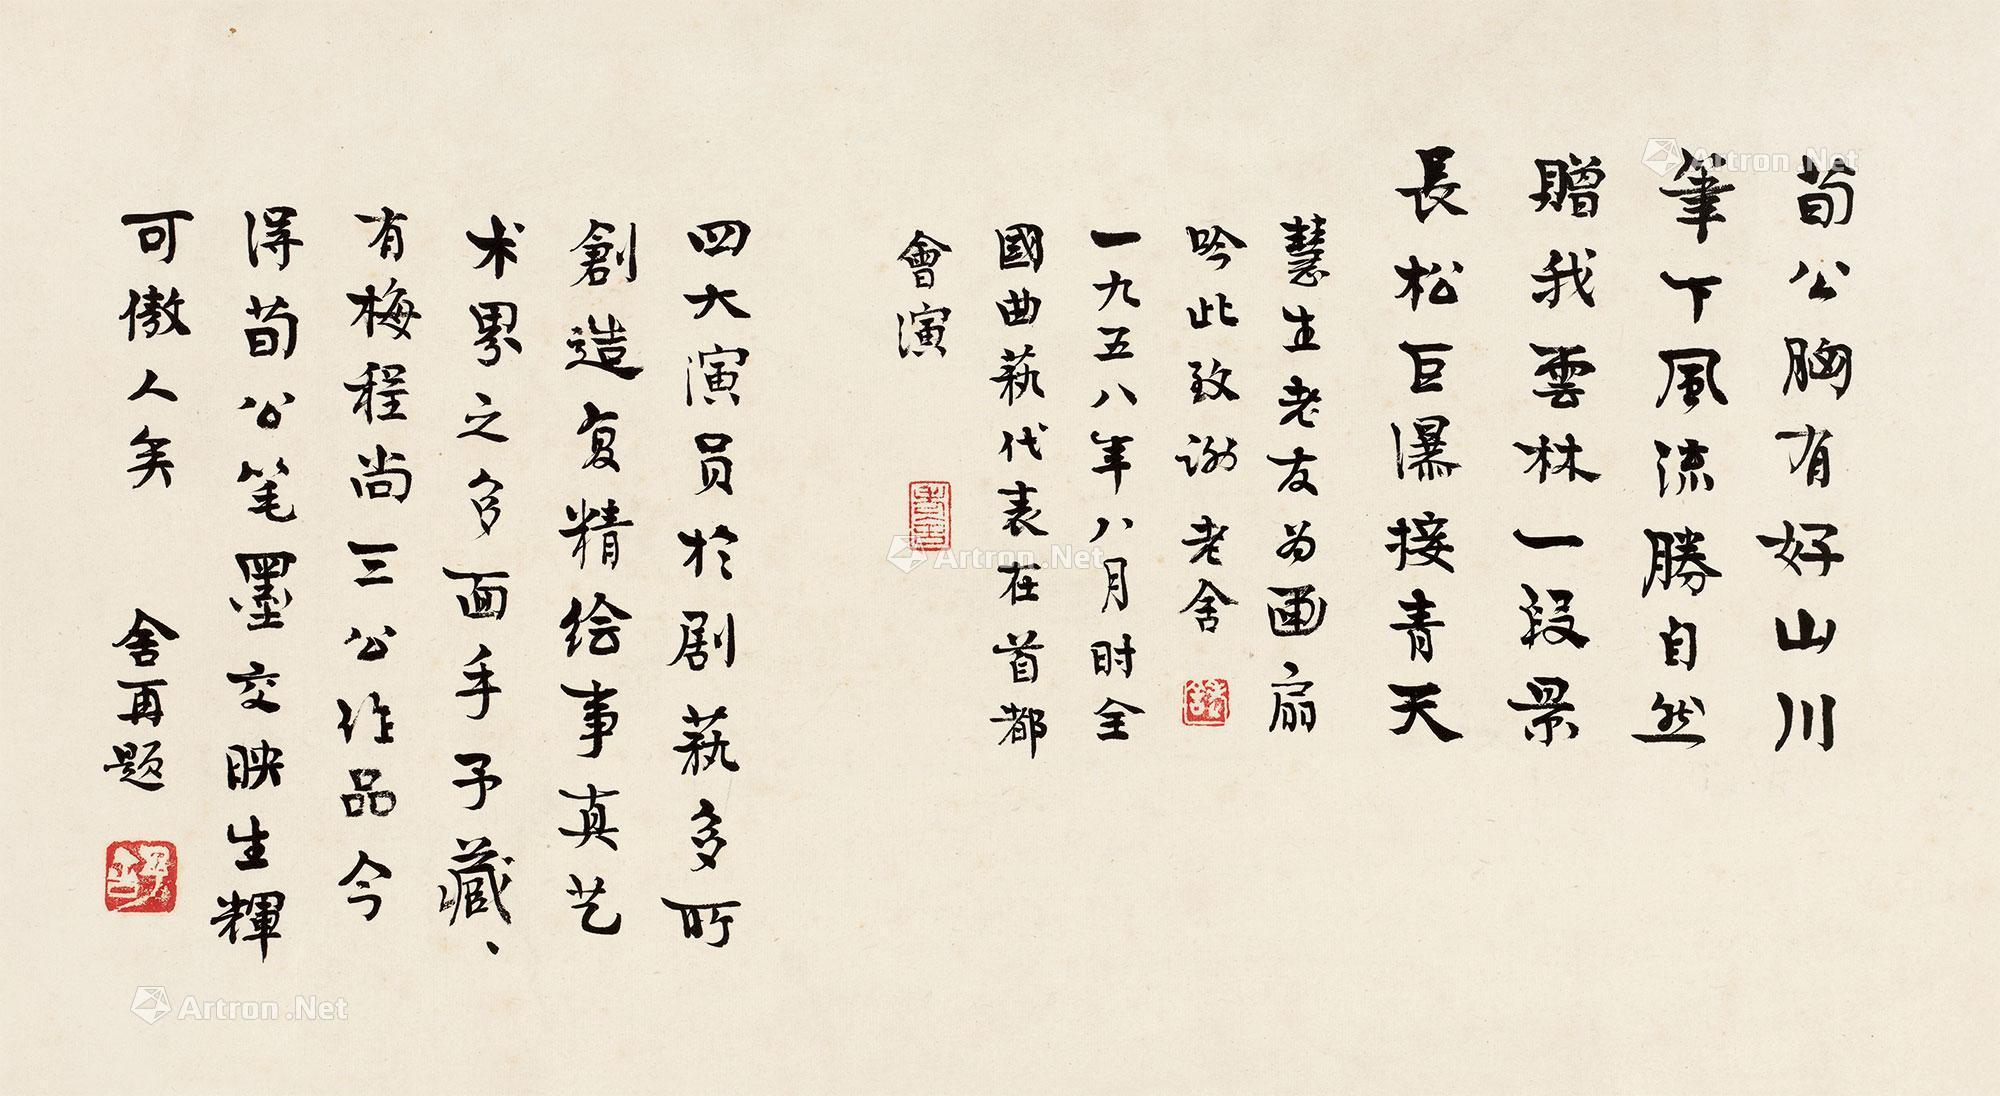 荀公胸有好山川
筆下風流勝自然
贈我雲林一段景
長松巨瀑接青天
慧生老友为画扇
吟此致谢老舍
一九五八年八月时全
國曲藝代表在首都
會演
四大演员於剧藝多所
創造复精绘事真艺
术界之多面手予藏、
有梅程尚三公作品今
得荀公笔墨交映生輝
可傲人矣
舍再题
Artron.Net
Artron.Net
Artron.Net